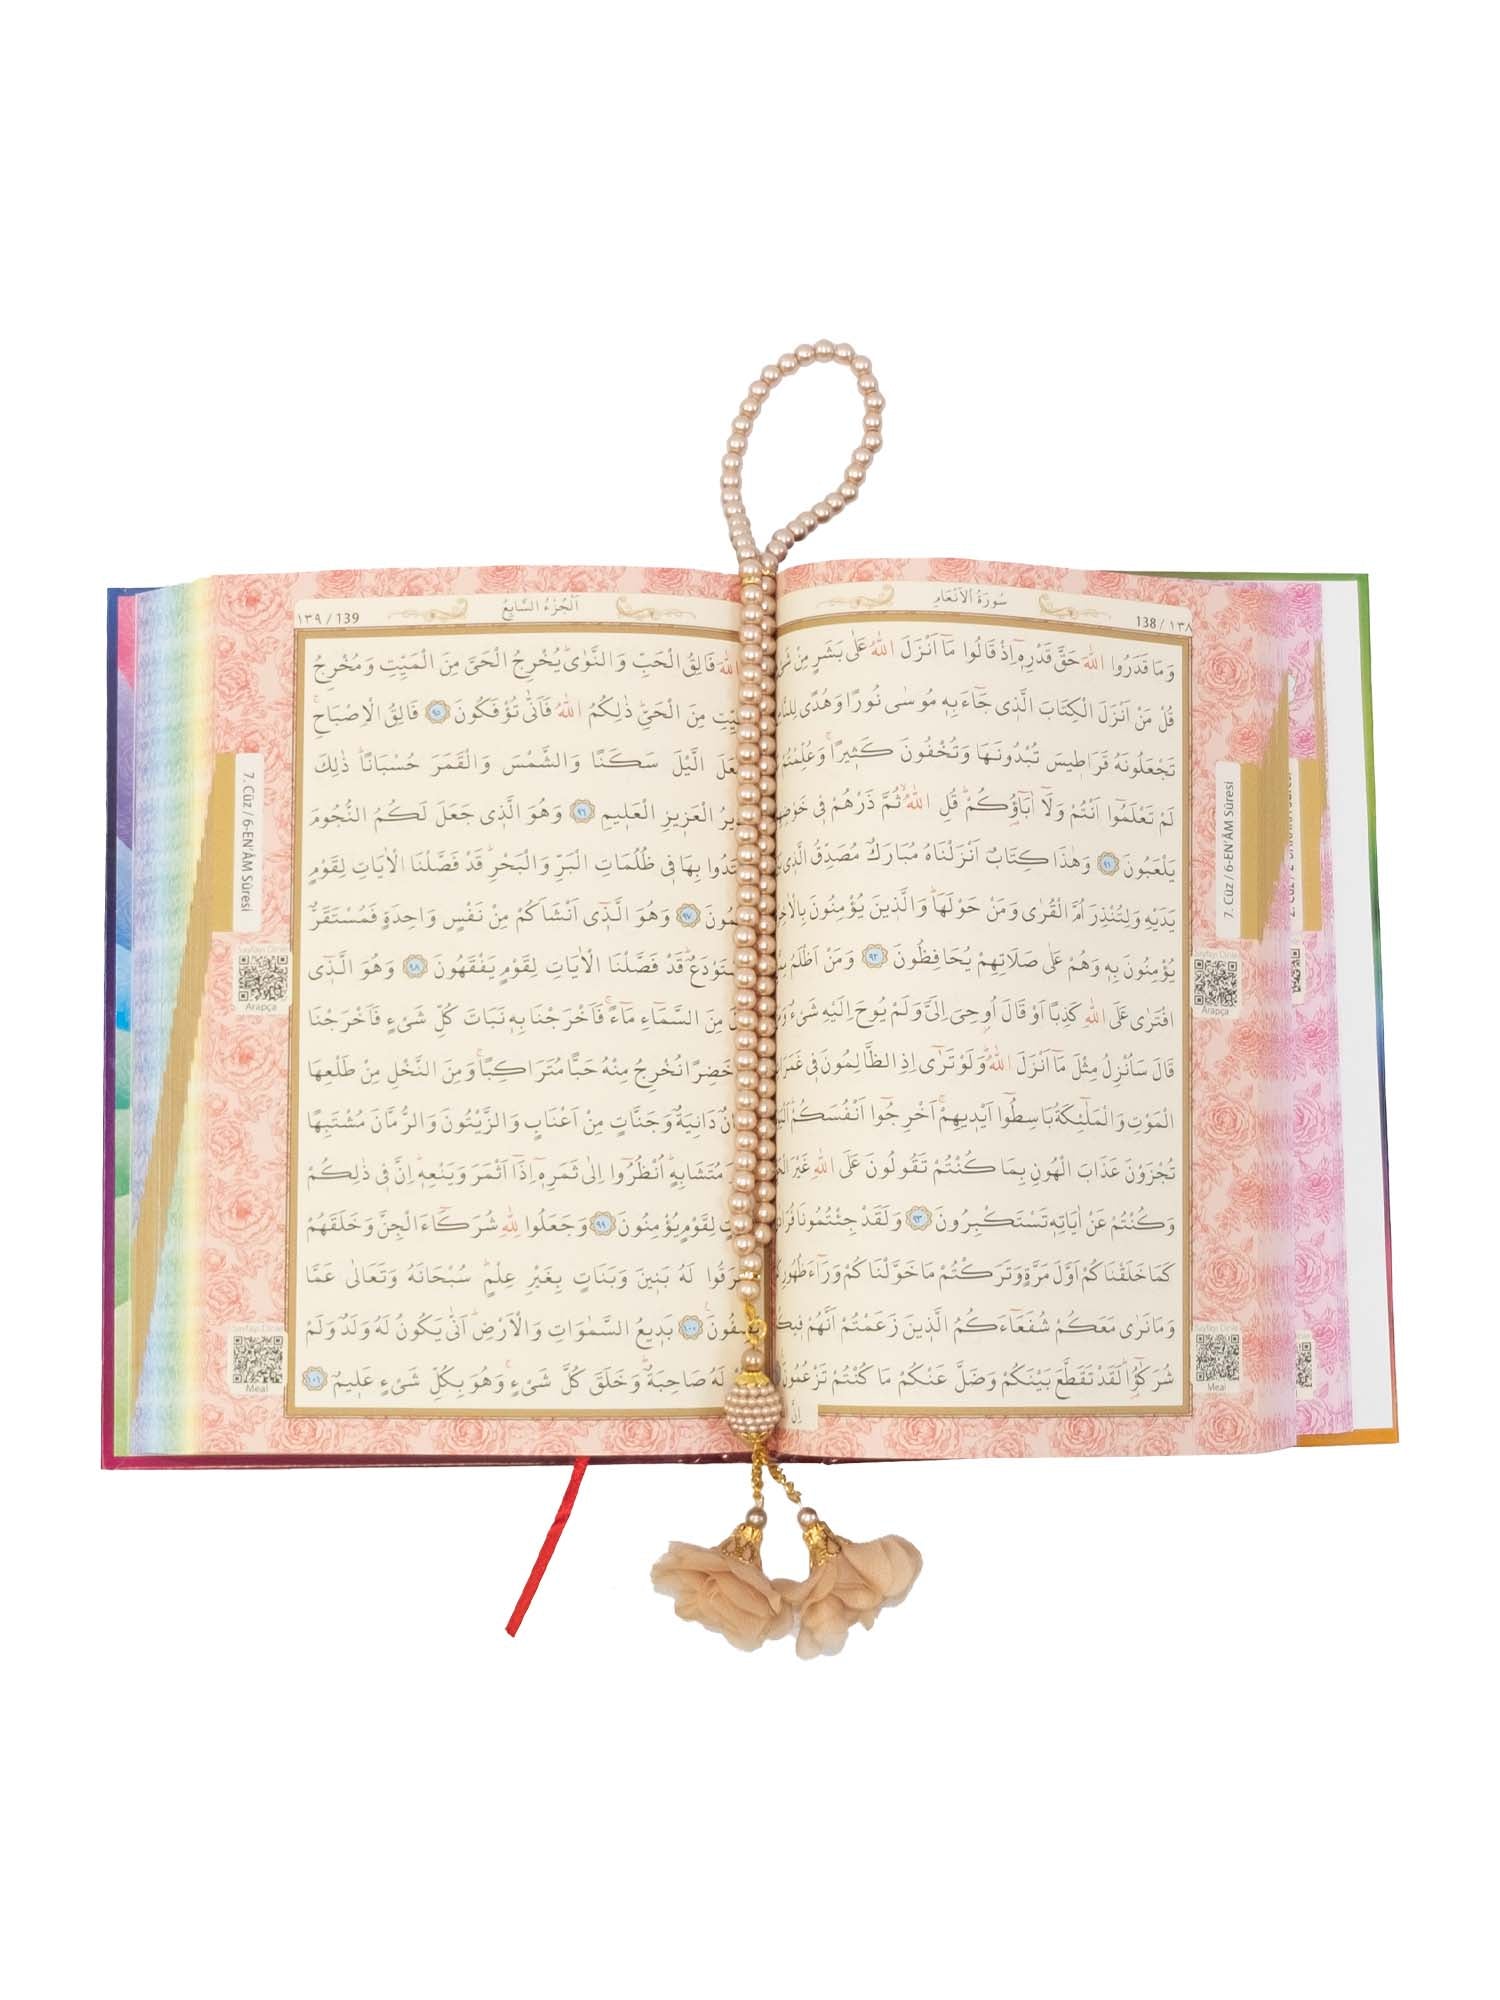 138 / ١٣٨
سُورَةُ الْاَنْعَامِ
وَمَا قَدَرُوا اللّٰهَ حَقَّ قَدْرِه۪ٓ اِذْ قَالُوا مَٓا اَنْزَلَ اللّٰهُ عَلٰى بَشَرٍ مِنْ
قُلْ مَنْ اَنْزَلَ الْكِتَابَ الَّذ۪ي جَٓاءَ بِه۪ مُوسٰى نُورًا وَهُدًى
تَجْعَلُونَهُ قَرَاط۪يسَ تُبْدُونَهَا وَتُخْفُونَ كَث۪يرًاۚ وَعُلِّمْتُمْ
لَمْ تَعْلَمُٓوا اَنْتُمْ وَلَٓا اٰبَٓاؤُ۬كُمْۜ قُلِ اللّٰهُۙ ثُمَّ ذَرْهُمْ ف۪ي
يَلْعَبُونَ ٩١ وَهٰذَا كِتَابٌ اَنْزَلْنَاهُ مُبَارَكٌ مُصَدِّقُ الَّذ۪ي
يَدَيْهِ وَلِتُنْذِرَ اُمَّ الْقُرٰى وَمَنْ حَوْلَهَاۜ وَالَّذ۪ينَ يُؤْمِنُونَ
يُؤْمِنُونَ بِه۪ وَهُمْ عَلٰى صَلَاتِهِمْ يُحَافِظُونَ ٩٢ وَمَنْ اَظْلَمُ
افْتَرٰى عَلَى اللّٰهِ كَذِبًا اَوْ قَالَ اُو۫حِيَ اِلَيَّ وَلَمْ يُوحَ اِلَيْهِ شَيْءٌ
قَالَ سَاُنْزِلُ مِثْلَ مَٓا اَنْزَلَ اللّٰهُۜ وَلَوْ تَرٰٓى اِذِ الظَّالِمُونَ ف۪ي
الْمَوْتِ وَالْمَلٰٓئِكَةُ بَاسِطُٓوا اَيْد۪يهِمْۚ اَخْرِجُٓوا اَنْفُسَكُمْۜ
تُجْزَوْنَ عَذَابَ الْهُونِ بِمَا كُنْتُمْ تَقُولُونَ عَلَى اللّٰهِ غَيْرَ
وَكُنْتُمْ عَنْ اٰيَاتِه۪ تَسْتَكْبِرُونَ ٩٣ وَلَقَدْ جِئْتُمُونَا
كَمَا خَلَقْنَاكُمْ اَوَّلَ مَرَّةٍ وَتَرَكْتُمْ مَا خَوَّلْنَاكُمْ وَرَٓاءَ
وَمَا نَرٰى مَعَكُمْ شُفَعَٓاءَكُمُ الَّذ۪ينَ زَعَمْتُمْ اَنَّهُمْ
شُرَكٰٓؤُ۬اۜ لَقَدْ تَقَطَّعَ بَيْنَكُمْ وَضَلَّ عَنْكُمْ مَا كُنْتُمْ تَزْعُمُونَ
اِنَّ
7. Cüz / 6-EN'ÂM Sûresi
Sayfayı Dinle
Arapça
Sayfayı Dinle
Meal
اَلْجُزْءُ السَّابِعُ
١٣٩ / 139
اللّٰهَ فَالِقُ الْحَبِّ وَالنَّوٰىۜ يُخْرِجُ الْحَيَّ مِنَ الْمَيِّتِ وَمُخْرِجُ
مِنَ الْحَيِّۜ ذٰلِكُمُ اللّٰهُ فَاَنّٰى تُؤْفَكُونَ ٩٥ فَالِقُ الْاِصْبَاحِۚ
الَّيْلَ سَكَنًا وَالشَّمْسَ وَالْقَمَرَ حُسْبَانًاۜ ذٰلِكَ
الْعَز۪يزِ الْعَل۪يمِ ٩٦ وَهُوَ الَّذ۪ي جَعَلَ لَكُمُ النُّجُومَ
بِهَا ف۪ي ظُلُمَاتِ الْبَرِّ وَالْبَحْرِۜ قَدْ فَصَّلْنَا الْاٰيَاتِ لِقَوْمٍ
٩٧ وَهُوَ الَّذ۪ٓي اَنْشَاَكُمْ مِنْ نَفْسٍ وَاحِدَةٍ فَمُسْتَقَرٌّ
قَدْ فَصَّلْنَا الْاٰيَاتِ لِقَوْمٍ يَفْقَهُونَ ٩٨ وَهُوَ الَّذ۪ٓي
مِنَ السَّمَٓاءِ مَٓاءًۚ فَاَخْرَجْنَا بِه۪ نَبَاتَ كُلِّ شَيْءٍ فَاَخْرَجْنَا
خَضِرًا نُخْرِجُ مِنْهُ حَبًّا مُتَرَاكِبًاۚ وَمِنَ النَّخْلِ مِنْ طَلْعِهَا
دَانِيَةٌ وَجَنَّاتٍ مِنْ اَعْنَابٍ وَالزَّيْتُونَ وَالرُّمَّانَ مُشْتَبِهًا
مُتَشَابِهٍۜ اُنْظُرُٓوا اِلٰى ثَمَرِه۪ٓ اِذَٓا اَثْمَرَ وَيَنْعِه۪ۜ اِنَّ ف۪ي ذٰلِكُمْ
لِقَوْمٍ يُؤْمِنُونَ ٩٩ وَجَعَلُوا لِلّٰهِ شُرَكَٓاءَ الْجِنَّ وَخَلَقَهُمْ
لَهُ بَن۪ينَ وَبَنَاتٍ بِغَيْرِ عِلْمٍۜ سُبْحَانَهُ وَتَعَالٰى عَمَّا
١٠٠ بَد۪يعُ السَّمٰوَاتِ وَالْاَرْضِۜ اَنّٰى يَكُونُ لَهُ وَلَدٌ وَلَمْ
لَهُ صَاحِبَةٌۜ وَخَلَقَ كُلَّ شَيْءٍۚ وَهُوَ بِكُلِّ شَيْءٍ عَل۪يمٌ ١٠١
7. Cüz / 6-EN'ÂM Sûresi
Sayfayı Dinle
Arapça
Sayfayı Dinle
Meal